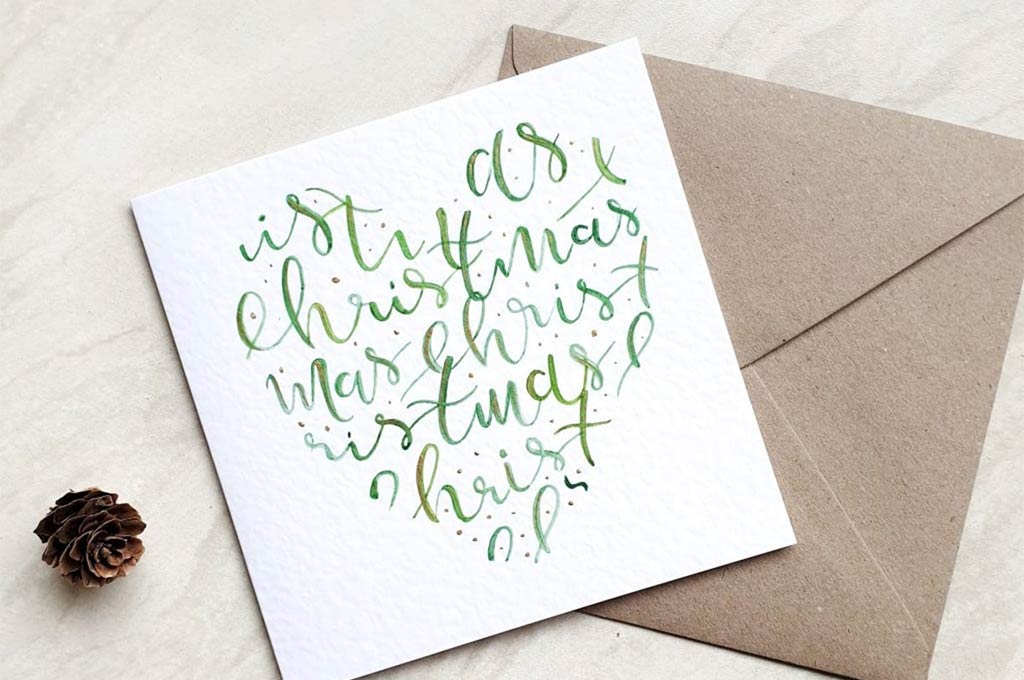 as
ist
christmas
mas christ
ristmas
christ